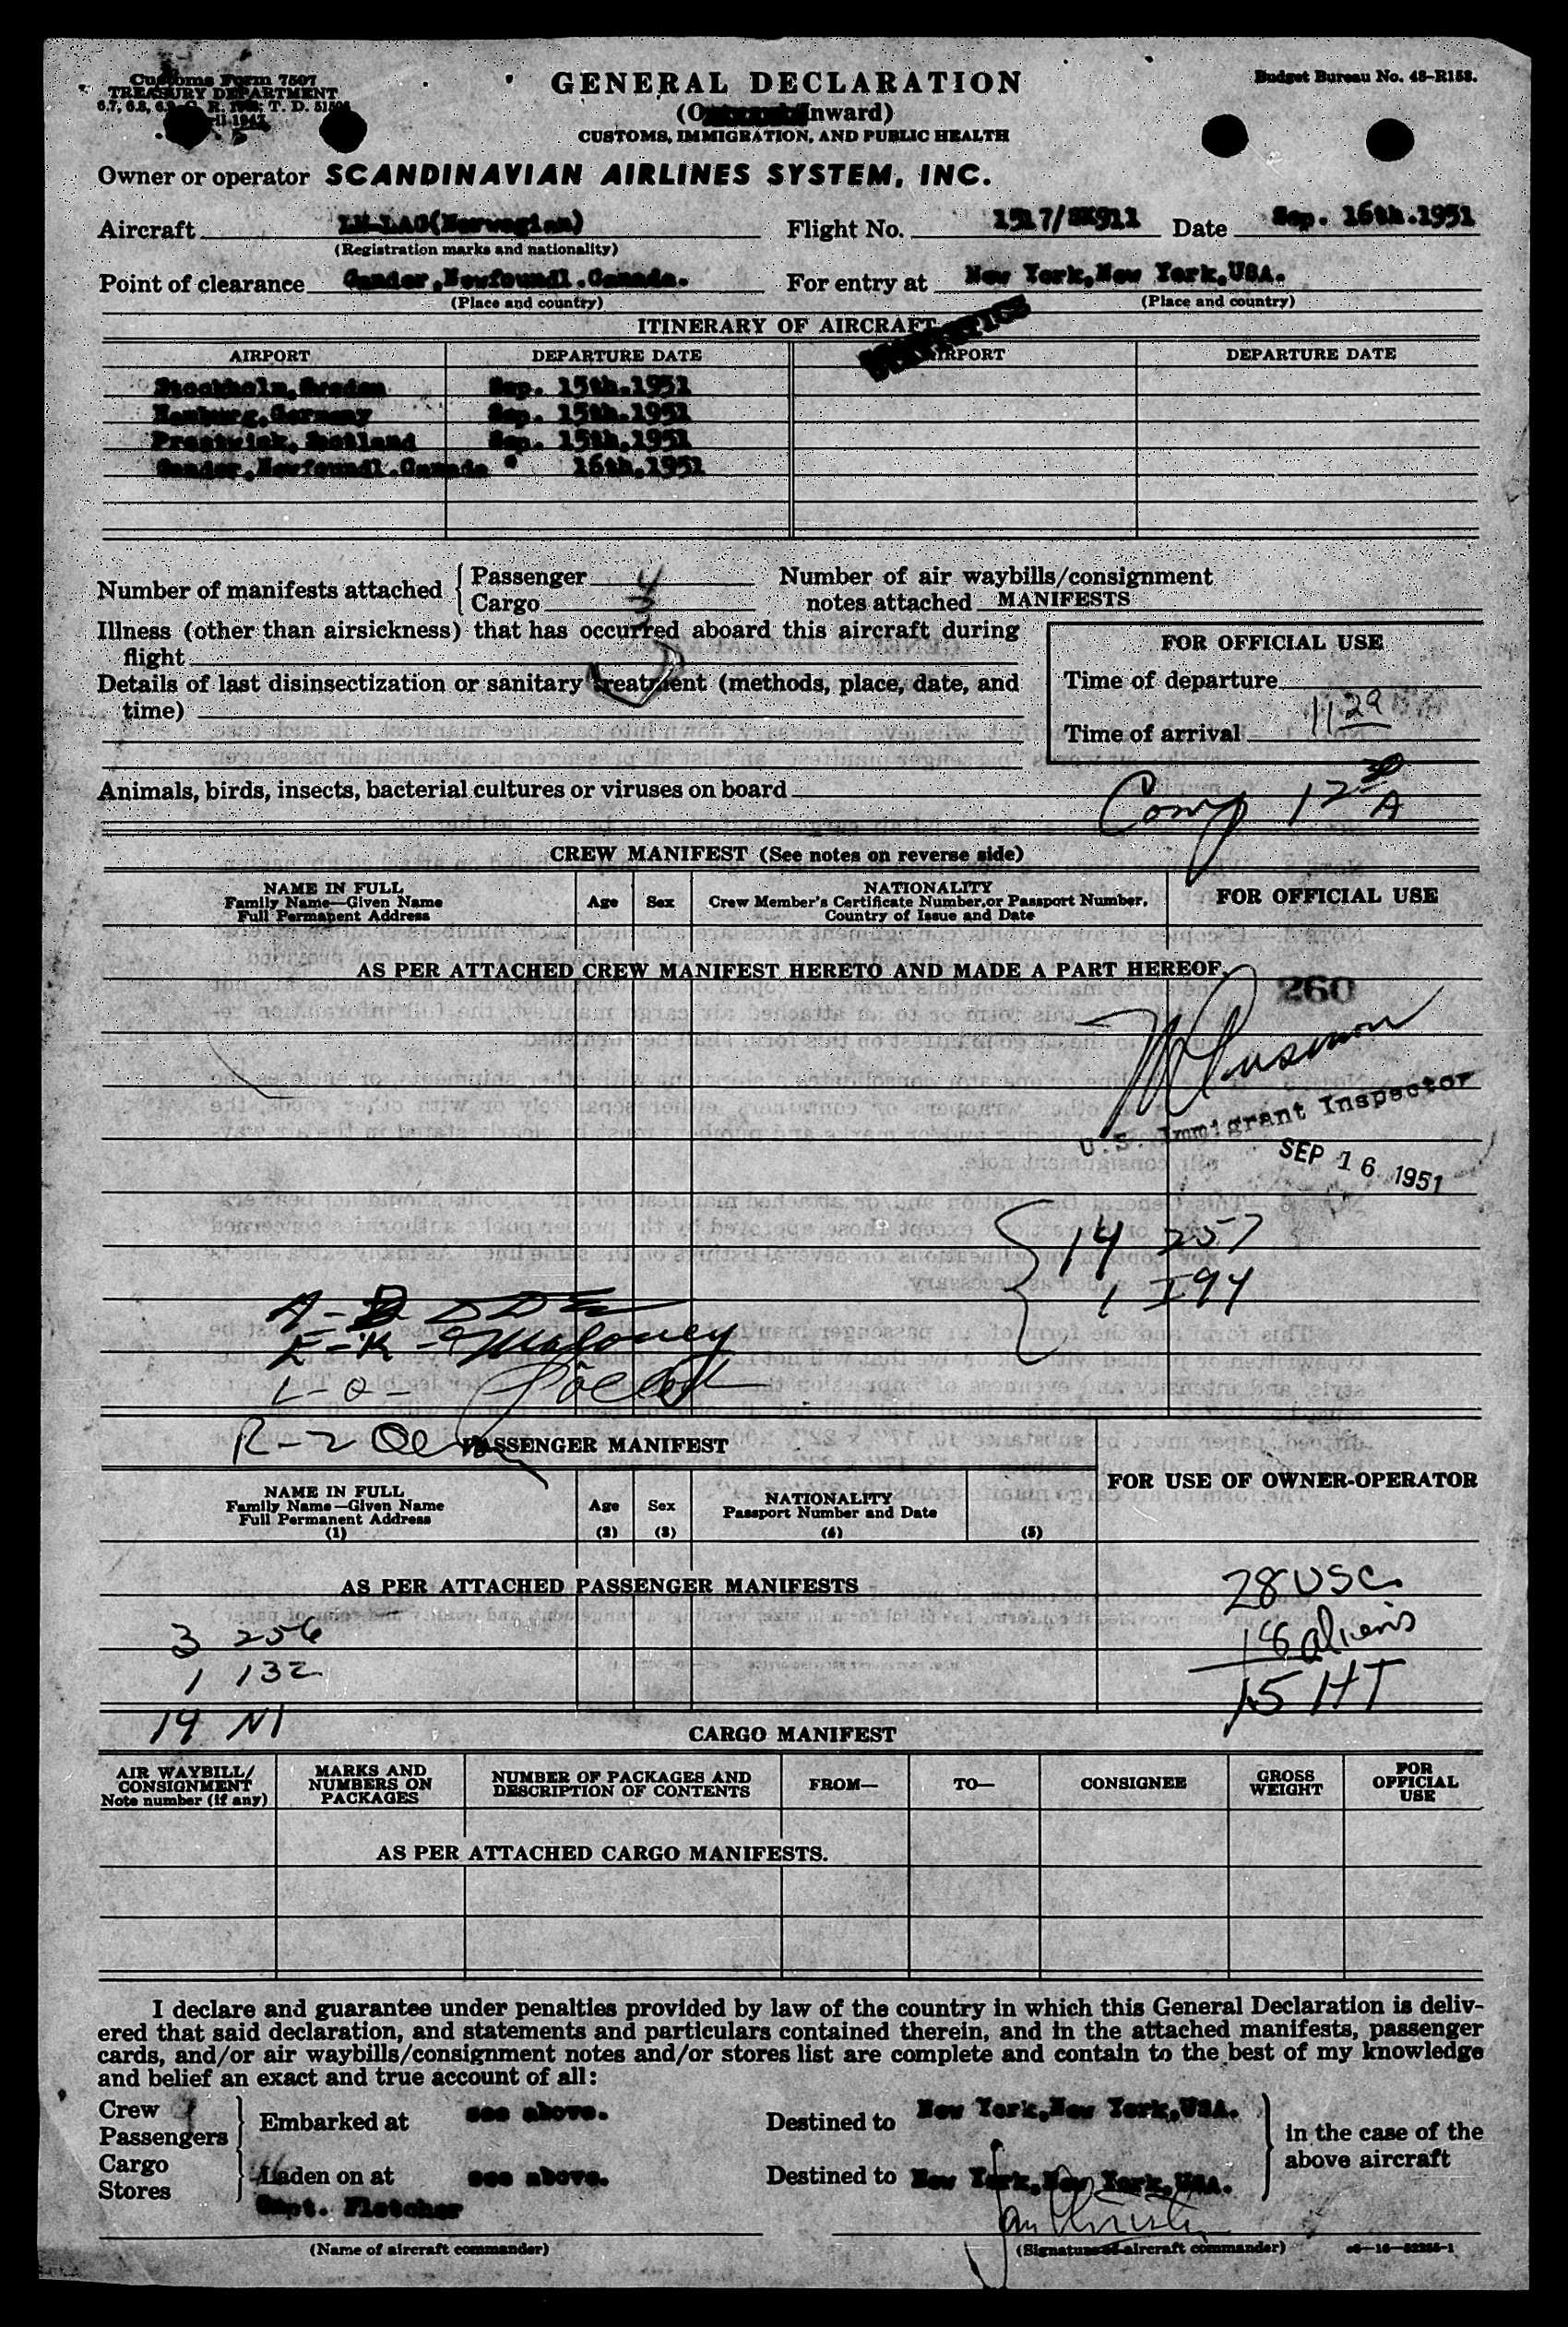 Customs Form 7507
TREASURY DEPARTMENT
GENERAL DECLARATION
Budget Bureau No. 48-R158.
Inward)
CUSTOMS, IMMIGRATION, AND PUBLIC HEALTH
Owner or operator SCANDINAVIAN AIRLINES SYSTEM, INC.
Aircraft (Norwegian) Flight No. 1517/SK911 Date Sep. 16th.1951
(Registration marks and nationality)
Point of clearance Gander,Newfoundl.Canada. For entry at New York,New York,USA.
(Place and country) (Place and country)
ITINERARY OF AIRCRAFT
AIRPORT DEPARTURE DATE AIRPORT DEPARTURE DATE
Stockholm,Sweden Sep. 15th.1951
Hamburg,Germany Sep. 15th.1951
Prestwick,Scotland Sep. 15th.1951
Gander,Newfoundl.Canada " 16th.1951
Number of manifests attached { Passenger 4 Number of air waybills/consignment
Cargo 3 notes attached MANIFESTS
Illness (other than airsickness) that has occurred aboard this aircraft during
flight
FOR OFFICIAL USE
Details of last disinsectization or sanitary treatment (methods, place, date, and
time)
Time of departure
Time of arrival 11 29
Animals, birds, insects, bacterial cultures or viruses on board
Comp 12 30 A
CREW MANIFEST (See notes on reverse side)
NAME IN FULL
Family Name—Given Name
Full Permanent Address
Age Sex
NATIONALITY
Crew Member's Certificate Number, or Passport Number,
Country of Issue and Date
FOR OFFICIAL USE
AS PER ATTACHED CREW MANIFEST HERETO AND MADE A PART HEREOF.
260
U.S. Immigrant Inspector
SEP 16 1951
14 257
1 I94
E-K- Maloney
L-Q-
R-Z
PASSENGER MANIFEST
NAME IN FULL
Family Name—Given Name
Full Permanent Address
(1)
Age
(2)
Sex
(3)
NATIONALITY
Passport Number and Date
(4) (5)
FOR USE OF OWNER-OPERATOR
AS PER ATTACHED PASSENGER MANIFESTS
28 USC
18 aliens
15 HT
3 256
1 132
14 NI
CARGO MANIFEST
AIR WAYBILL/
CONSIGNMENT
Note number (if any)
MARKS AND
NUMBERS ON
PACKAGES
NUMBER OF PACKAGES AND
DESCRIPTION OF CONTENTS
FROM— TO— CONSIGNEE
GROSS
WEIGHT
FOR
OFFICIAL
USE
AS PER ATTACHED CARGO MANIFESTS.
I declare and guarantee under penalties provided by law of the country in which this General Declaration is deliv-
ered that said declaration, and statements and particulars contained therein, and in the attached manifests, passenger
cards, and/or air waybills/consignment notes and/or stores list are complete and contain to the best of my knowledge
and belief an exact and true account of all:
Crew
Passengers } Embarked at see above. Destined to New York,New York,USA.
in the case of the
above aircraft
Cargo
Stores } Laden on at see above. Destined to New York,New York,USA.
Capt. Fletcher
(Name of aircraft commander) (Signature of aircraft commander)